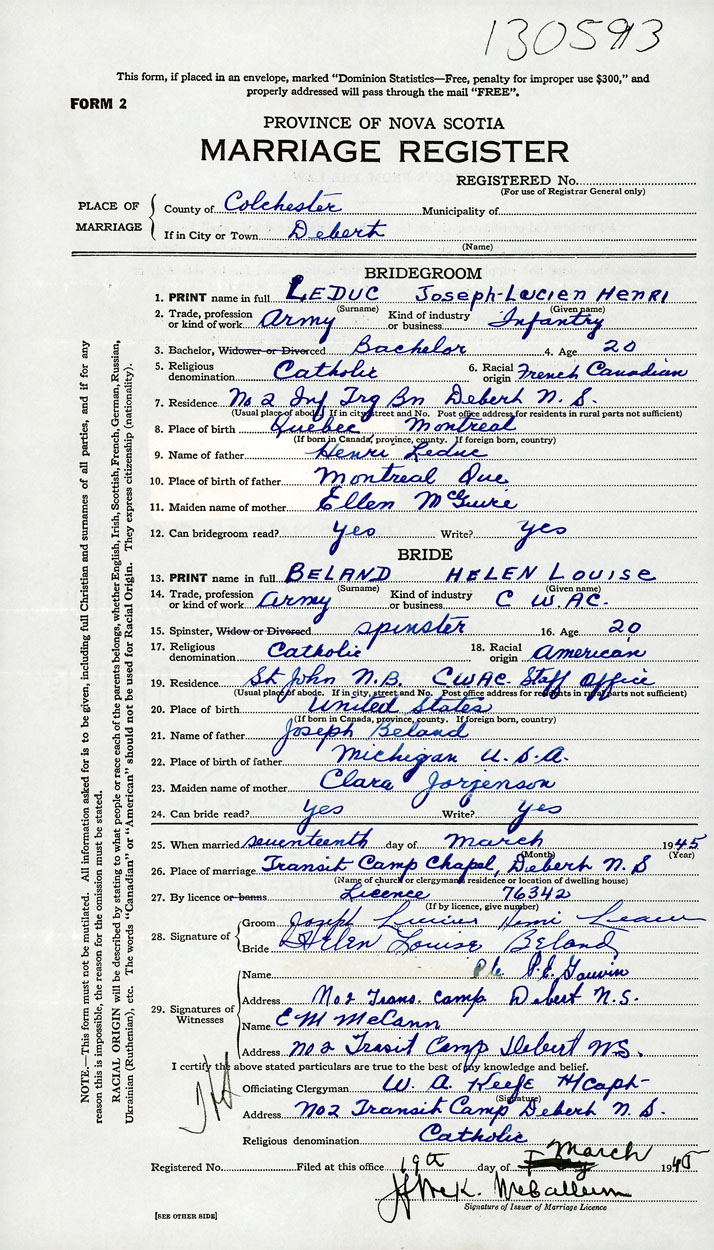 130593
This form, if placed in an envelope, marked "Dominion Statistics—Free, penalty for improper use $300," and
properly addressed will pass through the mail "FREE".
FORM 2
PROVINCE OF NOVA SCOTIA
MARRIAGE REGISTER
REGISTERED No.
(For use of Registrar General only)
PLACE OF MARRIAGE
County of Colchester Municipality of
If in City or Town Debert
(Name)
BRIDEGROOM
1. PRINT name in full LEDUC Joseph-Lucien Henri
(Surname) (Given name)
2. Trade, profession or kind of work Army Kind of industry or business Infantry
3. Bachelor, Widower or Divorced Bachelor 4. Age 20
5. Religious denomination Catholic 6. Racial origin French Canadian
7. Residence No 2 Inf Trg Bn Debert N. S.
(Usual place of abode. If in city, street and No. Post office address for residents in rural parts not sufficient)
8. Place of birth Quebec Montreal
(If born in Canada, province, county. If foreign born, country)
9. Name of father Henri Leduc
10. Place of birth of father Montreal Que
11. Maiden name of mother Ellen McGuire
12. Can bridegroom read? yes Write? yes
BRIDE
13. PRINT name in full BELAND HELEN LOUISE
(Surname) (Given name)
14. Trade, profession or kind of work Army Kind of industry or business C W.AC.
15. Spinster, Widow or Divorced spinster 16. Age 20
17. Religious denomination Catholic 18. Racial origin American
19. Residence St. John N.B. CWAC. Staff Office
(Usual place of abode. If in city, street and No. Post office address for residents in rural parts not sufficient)
20. Place of birth United States
(If born in Canada, province, county. If foreign born, country)
21. Name of father Joseph Beland
22. Place of birth of father Michigan U. S. A.
23. Maiden name of mother Clara Jorgenson
24. Can bride read? yes Write? yes
25. When married seventeenth day of March 1945
(Month) (Year)
26. Place of marriage Transit Camp Chapel, Debert N. S
(Name of church or clergyman's residence or location of dwelling house)
27. By licence or banns Licence 76342
(If by licence, give number)
28. Signature of
Groom Joseph Lucien Henri Leduc
Bride Helen Louise Beland
29. Signatures of Witnesses
Name Pte P.E. Gauvin
Address No 2 Trans. Camp Debert N.S.
Name E M McCann
Address No 2 Trasit Camp Debert NS.
I certify the above stated particulars are true to the best of my knowledge and belief.
Officiating Clergyman W. A. Keefe H/Capt-
(Signature)
Address No2 Transit Camp Debert N. S.
Religious denomination Catholic
Registered No. Filed at this office 19th day of March 1945
Signature of Issuer of Marriage Licence
[SEE OTHER SIDE]
NOTE.—This form must not be mutilated. All information asked for is to be given, including full Christian and surnames of all parties, and if for any
reason this is impossible, the reason for the omission must be stated.
RACIAL ORIGIN will be described by stating to what people or race each of the parents belongs, whether English, Irish, Scottish, French, German, Russian,
Ukrainian (Ruthenian), etc. The words "Canadian" or "American" should not be used for Racial Origin. They express citizenship (nationality).